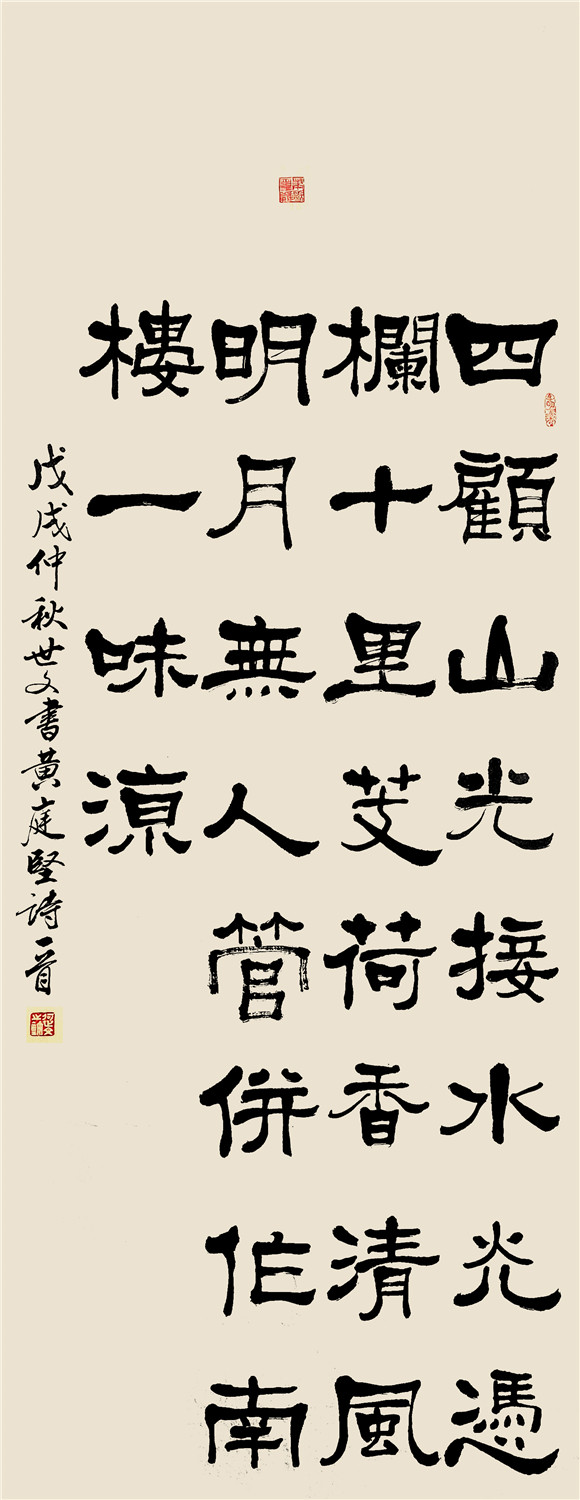 四顧山光接水光憑
欄十里芰荷香清風
明月無人管併作南
樓一味涼
戊戌仲秋世文書黄庭堅詩一首